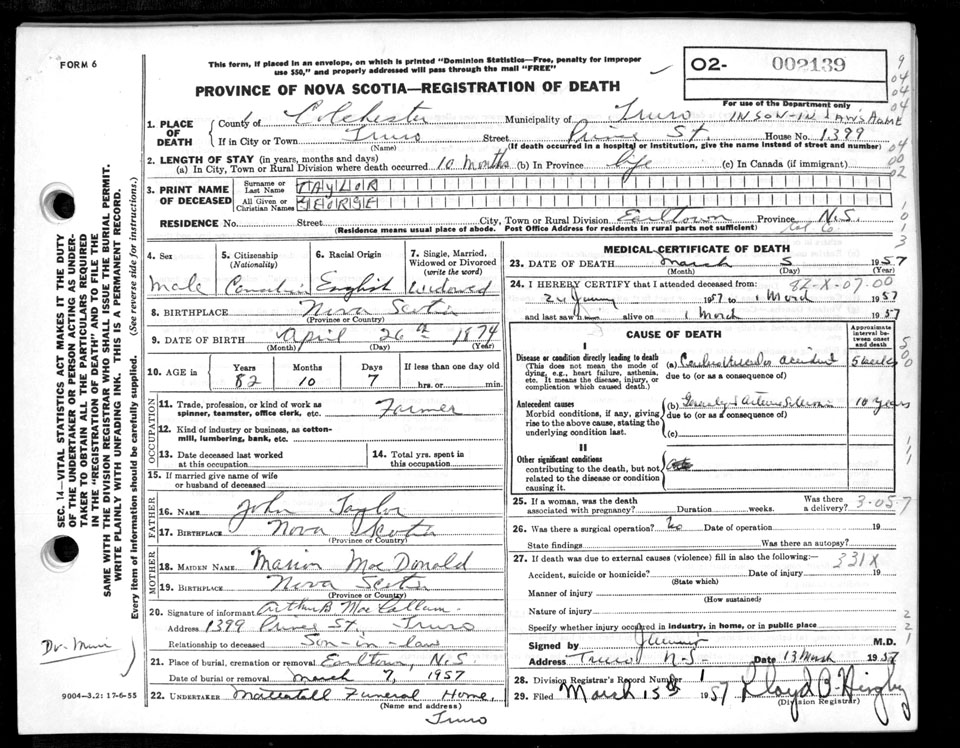 FORM 6
This form, if placed in an envelope, on which is printed "Dominion Statistics—Free, penalty for improper
use $50," and properly addressed will pass through the mail "FREE"
O2- 002139
For use of the Department only
PROVINCE OF NOVA SCOTIA—REGISTRATION OF DEATH
IN SON-IN LAW'S HOME
1. PLACE OF DEATH
County of Colchester Municipality of Truro
If in City or Town Truro Street Prince St. House No. 1399
(Name) (If death occurred in a hospital or institution, give the name instead of street and number)
2. LENGTH OF STAY (in years, months and days)
(a) In City, Town or Rural Division where death occurred 10 Months (b) In Province life (c) In Canada (if immigrant)
3. PRINT NAME OF DECEASED
Surname or Last Name TAYLOR
All Given or Christian Names GEORGE
RESIDENCE No. Street City, Town or Rural Division Earltown Province N.S.
(Residence means usual place of abode. Post Office Address for residents in rural parts not sufficient) Col Co.
4. Sex
Male
5. Citizenship
(Nationality)
6. Racial Origin
English
7. Single, Married, Widowed or Divorced
(write the word)
Widowed
8. BIRTHPLACE Nova Scotia
(Province or Country)
9. DATE OF BIRTH April 26th 1874
(Month) (Day) (Year)
10. AGE in
Years Months Days If less than one day old
82 10 7 hrs. or min.
OCCUPATION
11. Trade, profession, or kind of work as
spinner, teamster, office clerk, etc. Farmer
12. Kind of industry or business, as cotton-
mill, lumbering, bank, etc.
13. Date deceased last worked
at this occupation
14. Total yrs. spent in
this occupation
15. If married give name of wife
or husband of deceased
FATHER
16. NAME John Taylor
17. BIRTHPLACE Nova Scotia
(Province or Country)
MOTHER
18. MAIDEN NAME Marion MacDonald
19. BIRTHPLACE Nova Scotia
(Province or Country)
20. Signature of informant Arthur B MacCallum
Address 1399 Prince St. Truro
Relationship to deceased Son-in-law
21. Place of burial, cremation or removal Earltown, N.S.
Date of burial or removal March 7, 1957
22. UNDERTAKER Mattatall Funeral Home,
(Name and address)
Truro
MEDICAL CERTIFICATE OF DEATH
23. DATE OF DEATH March 5 1957
(Month) (Day) (Year)
24. I HEREBY CERTIFY that I attended deceased from: 82-X-07-00
1957 to 1 March 1957
and last saw h alive on 1 March 1957
CAUSE OF DEATH
Approximate interval between onset and death
I
Disease or condition directly leading to death
(This does not mean the mode of
dying, e.g., heart failure, asthenia,
etc. It means the disease, injury, or
complication which caused death.)
(a) accident 5 weeks
due to (or as a consequence of)
Antecedent causes
Morbid conditions, if any, giving
rise to the above cause, stating the
underlying condition last.
(b) 10 years
due to (or as a consequence of)
(c)
II
Other significant conditions
contributing to the death, but not
related to the disease or condition
causing it.
25. If a woman, was the death
associated with pregnancy? Duration weeks. Was there a delivery? 3-057
26. Was there a surgical operation? No Date of operation 19
State findings Was there an autopsy?
27. If death was due to external causes (violence) fill in also the following:— 331X
Accident, suicide or homicide? Date of injury 19
(State which)
Manner of injury
(How sustained)
Nature of injury
Specify whether injury occurred in industry, in home, or in public place
Signed by M.D.
Address Truro N-S- Date 13 March 1957
28. Division Registrar's Record Number 1
29. Filed March 15th 1957
(Division Registrar)
SEC. 14—VITAL STATISTICS ACT MAKES IT THE DUTY
OF THE UNDERTAKER OR PERSON ACTING AS UNDER-
TAKER TO OBTAIN ALL THE PARTICULARS REQUIRED
IN THE "REGISTRATION OF DEATH" AND TO FILE THE
SAME WITH THE DIVISION REGISTRAR WHO SHALL ISSUE THE BURIAL PERMIT.
WRITE PLAINLY WITH UNFADING INK. THIS IS A PERMANENT RECORD.
Every item of information should be carefully supplied. (See reverse side for instructions.)
9004-3.2: 17-6-55